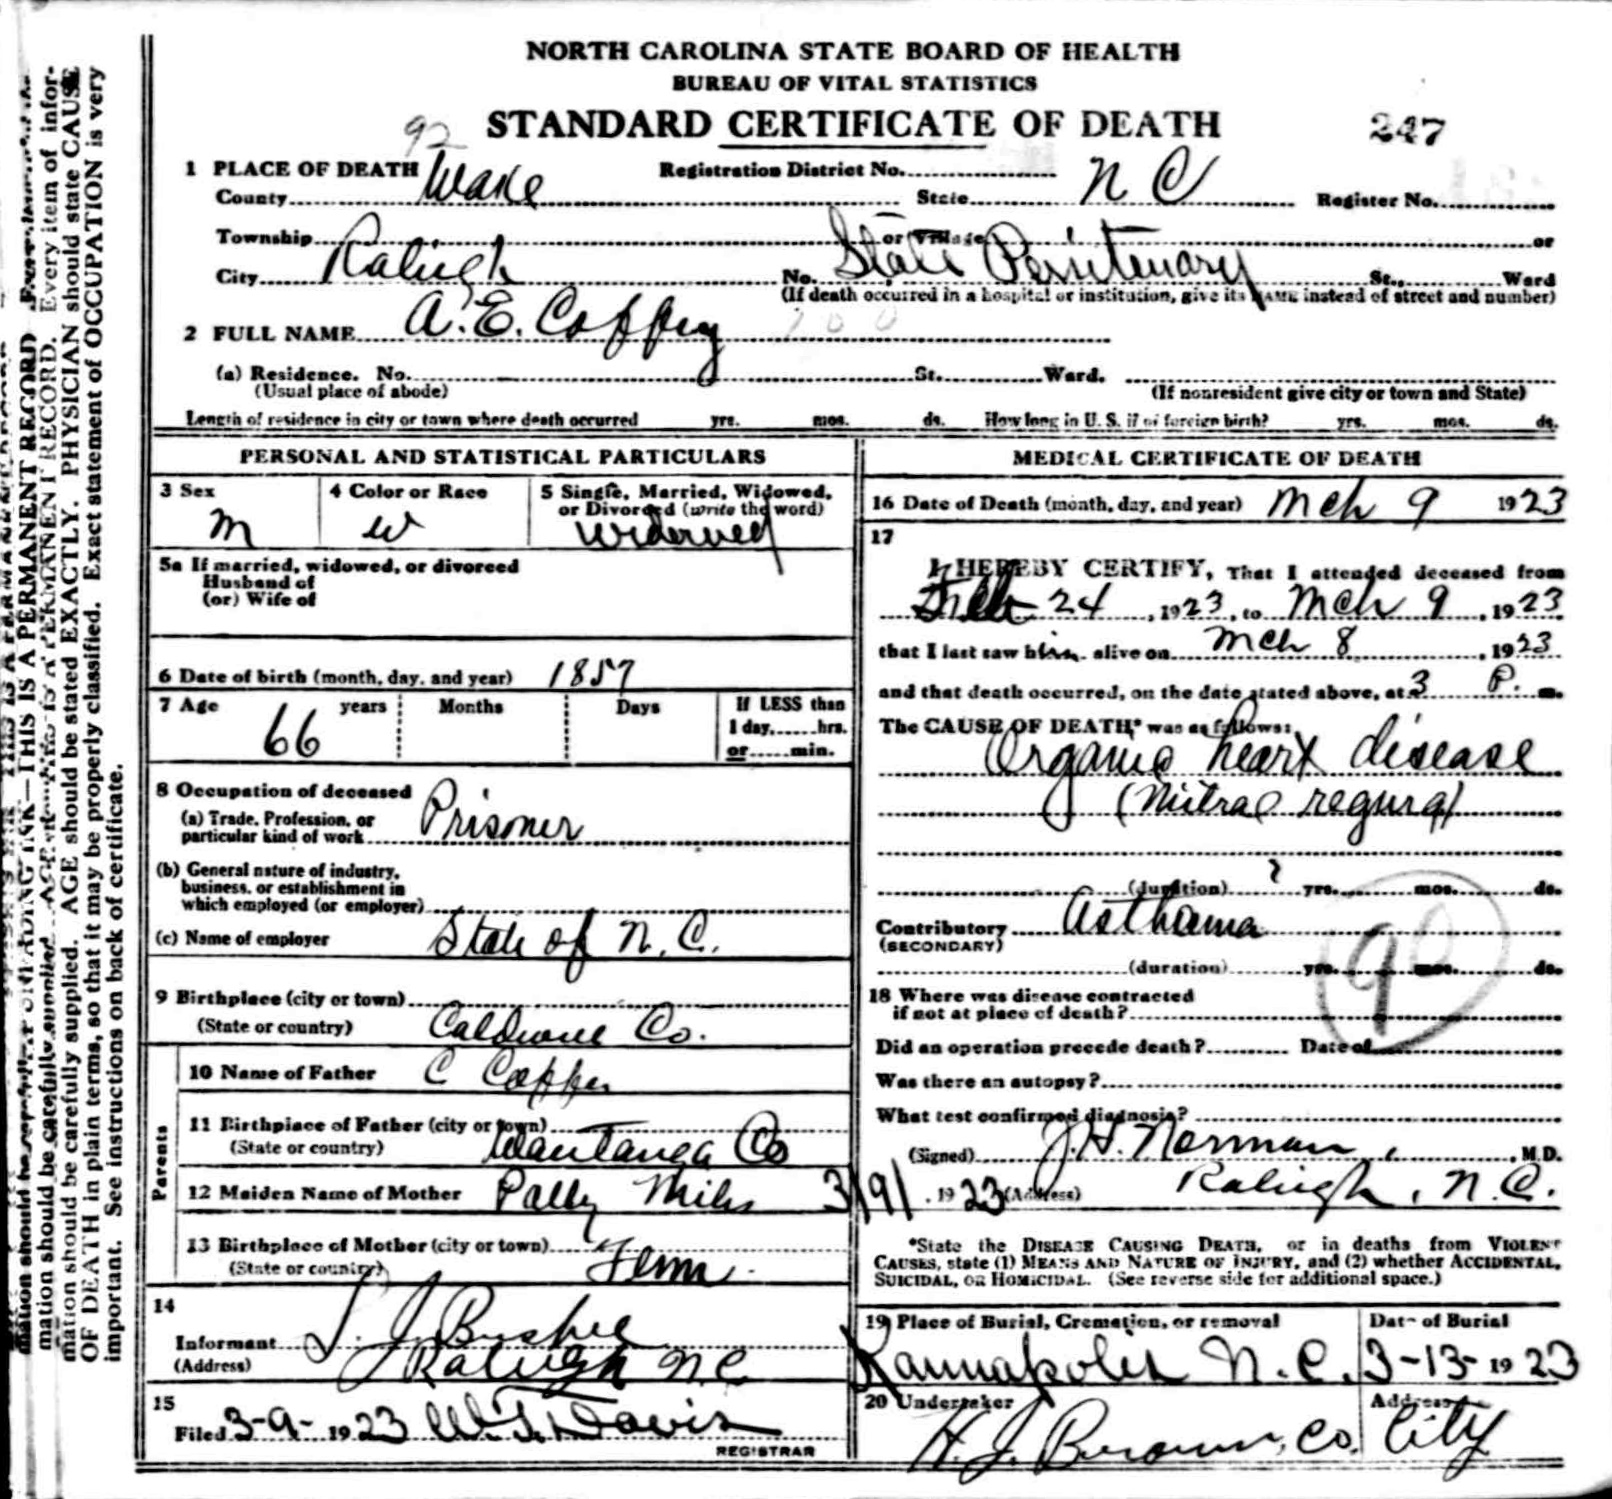 NORTH CAROLINA STATE BOARD OF HEALTH
BUREAU OF VITAL STATISTICS
92 STANDARD CERTIFICATE OF DEATH 247
1 PLACE OF DEATH Registration District No.
County Wake State N C Register No.
Township or Village or
City Raleigh No. State Penitenary St., Ward
(If death occurred in a hospital or institution, give its NAME instead of street and number)
2 FULL NAME A. E. Coffey
(a) Residence. No. St. Ward.
(Usual place of abode) (If nonresident give city or town and State)
Length of residence in city or town where death occurred yrs. mos. ds. How long in U. S. if of foreign birth? yrs. mos. ds.
PERSONAL AND STATISTICAL PARTICULARS
3 Sex 4 Color or Race 5 Single, Married, Widowed,
or Divorced (write the word)
M W Widowed
5a If married, widowed, or divorced
Husband of
(or) Wife of
6 Date of birth (month, day, and year) 1857
7 Age years Months Days If LESS than
66 1 day, hrs.
or min.
8 Occupation of deceased
(a) Trade, Profession, or
particular kind of work Prisoner
(b) General nature of industry,
business, or establishment in
which employed (or employer)
(c) Name of employer State of N. C.
9 Birthplace (city or town)
(State or country) Caldwell Co.
Parents
10 Name of Father C Coffey
11 Birthplace of Father (city or town)
(State or country) Wautauga Co
12 Maiden Name of Mother Polly Miles
13 Birthplace of Mother (city or town)
(State or country) Tenn.
14
Informant
(Address) Raleigh N C
15
Filed 3-9- 1923 W. T. Davis
REGISTRAR
MEDICAL CERTIFICATE OF DEATH
16 Date of Death (month, day, and year) Mch 9 1923
17
I HEREBY CERTIFY, That I attended deceased from
Feb 24, 1923, to Mch 9, 1923
that I last saw him alive on Mch 8, 1923
and that death occurred, on the date stated above, at 3 P. m.
The CAUSE OF DEATH* was as follows:
Organic heart disease
(Mitral regurg)
(duration) ? yrs. mos. ds.
Contributory Asthama
(SECONDARY)
(duration) yrs. mos. ds.
90
18 Where was disease contracted
if not at place of death?
Did an operation precede death? Date of
Was there an autopsy?
What test confirmed diagnosis?
(Signed) J. H. Norman, M.D.
3/9/, 1923 (Address) Raleigh, N. C.
*State the DISEASE CAUSING DEATH, or in deaths from VIOLENT
CAUSES, state (1) MEANS AND NATURE OF INJURY, and (2) whether ACCIDENTAL,
SUICIDAL, OR HOMICIDAL. (See reverse side for additional space.)
19 Place of Burial, Cremation, or removal Date of Burial
Kannapolis N. C. 3-13- 1923
20 Undertaker Address
H. J. Brown Co. City
THIS IS A PERMANENT RECORD. Every item of infor-
mation should be carefully supplied. AGE should be stated EXACTLY. PHYSICIAN should state CAUSE
OF DEATH in plain terms, so that it may be properly classified. Exact statement of OCCUPATION is very
important. See instructions on back of certificate.